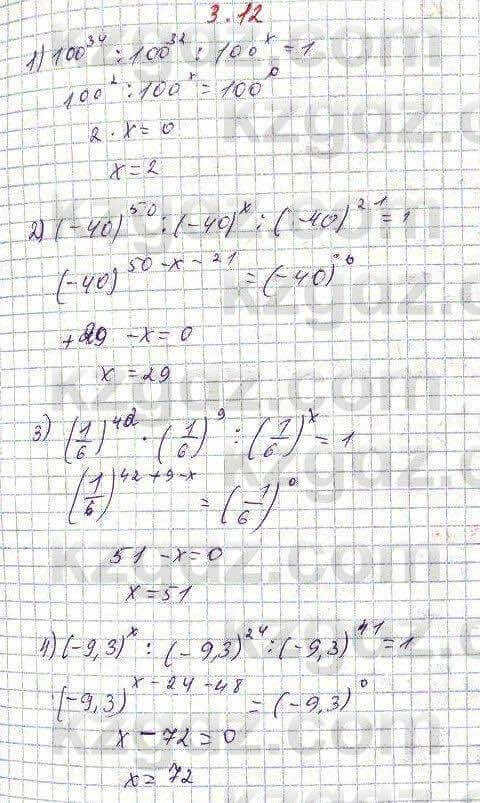 3.12
1) 100³⁴ : 100³² : 100ˣ = 1
100² : 100ˣ = 100⁰
2 · x = 0
x = 2
2) (-40)⁵⁰ : (-40)ˣ : (-40)²¹ = 1
(-40)⁵⁰⁻ˣ⁻²¹ = (-40)⁰
+29 - x = 0
x = 29
3) (1/6)⁴² · (1/6)⁹ : (1/6)ˣ = 1
(1/6)⁴²⁺⁹⁻ˣ = (1/6)⁰
51 - x = 0
x = 51
4) (-9,3)ˣ : (-9,3)²⁴ : (-9,3)⁴¹ = 1
(-9,3)ˣ⁻²⁴⁻⁴⁸ = (-9,3)⁰
x - 72 = 0
x = 72
kzgdz.com